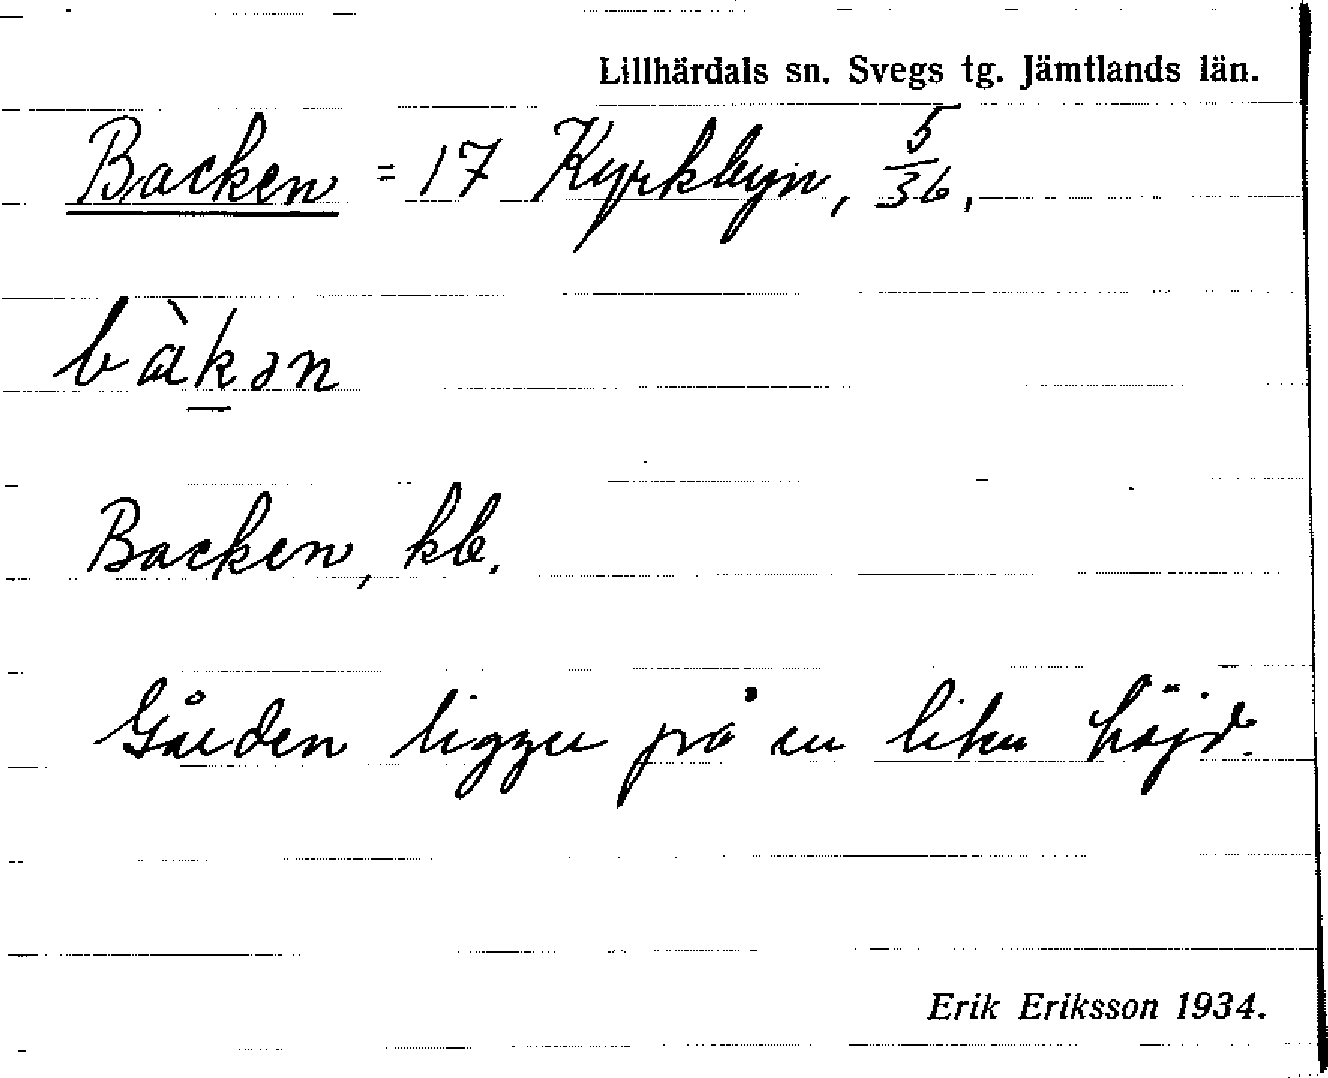 Lillhärdals sn. Svegs tg. Jämtlands län.
Backen = 17 Kyrkbyn, 5/36,
bὰkən
Backen, kb.
Gården ligger på en liten höjd.
Erik Eriksson 1934.